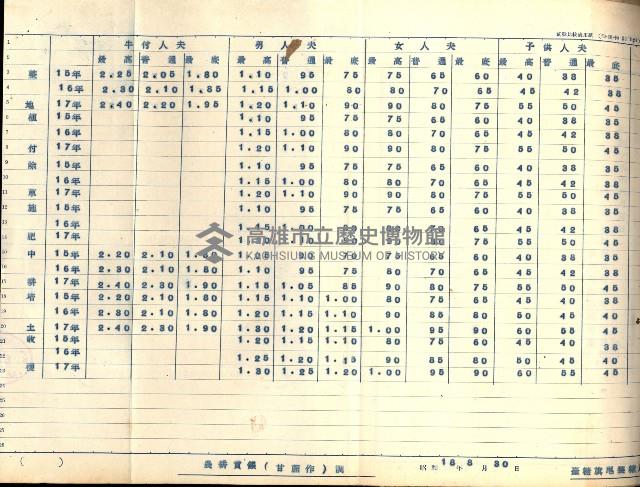 牛付人夫 男人夫 女人夫 子供人夫
最高 普通 最底 最高 普通 最底 最高 普通 最底 最高 普通 最底
整 15年 2.25 2.05 1.80 1.10 95 75 75 65 60 40 38 35
16年 2.30 2.10 1.85 1.15 1.00 80 80 70 65 45 42 38
地 17年 2.40 2.20 1.95 1.20 1.10 90 90 80 75 55 50 45
植 15年 1.10 95 75 75 65 60 40 38 35
16年 1.15 1.00 80 80 70 65 45 42 38
付 17年 1.20 1.10 90 90 80 75 55 50 45
除 15年 1.10 95 75 75 65 60 40 38 35
16年 1.15 1.00 80 80 70 65 45 42 38
草 17年 1.20 1.10 90 90 80 75 55 50 45
施 15年 1.10 95 75 75 65 60 40 38 35
16年 80 70 65 45 42 38
肥 17年 80 75 55 50 45
中 15年 2.20 2.10 65 60 40 38 35
16年 2.30 2.10 1.80 1.10 95 75 80 70 65 45 42 38
耕 17年 2.40 2.30 1.90 1.15 1.05 85 90 80 75 55 50 45
培 15年 2.20 2.10 1.80 1.20 1.10 1.00 80 75 65 45 40 38
16年 2.30 2.10 1.80 1.20 1.15 1.10 90 85 80 50 45 40
土 17年 2.40 2.30 1.90 1.30 1.20 1.15 1.00 95 90 60 55 45
收 15年 1.20 1.15 1.10 80 75 60 45 40 38
16年 1.25 1.20 1.15 90 85 80 50 45 40
穫 17年 1.30 1.25 1.20 1.00 95 90 60 55 45
高雄市立歷史博物館
KAOHSIUNG MUSEUM OF HISTORY
( ) 農耕賃銀(甘蔗作)調 昭和 18年 8月 30日